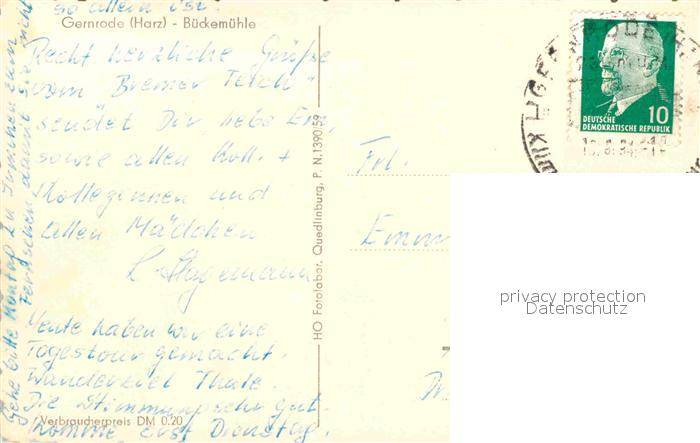 so allein ist.
Gernrode (Harz) - Bückemühle
Recht herzliche Grüße
vom "Bremer Teich"
sendet Dir, liebe Em,
sowie allen Koll. +
Kolleginnen und
allen Mädchen
L. Stagemann
Heute haben wir eine
Tagestour gemacht.
Wanderziel Thale.
Die Stimmung sehr gut.
Komme erst Dienstag.
Verbraucherpreis DM 0.20
Gehe bitte Montag zu Immchen zum
Fernsehen damit sie nicht
HO Fotolabor, Quedlinburg, P. N. 1390/59
Frl.
Emm
10
DEUTSCHE
DEMOKRATISCHE REPUBLIK
privacy protection
Datenschutz